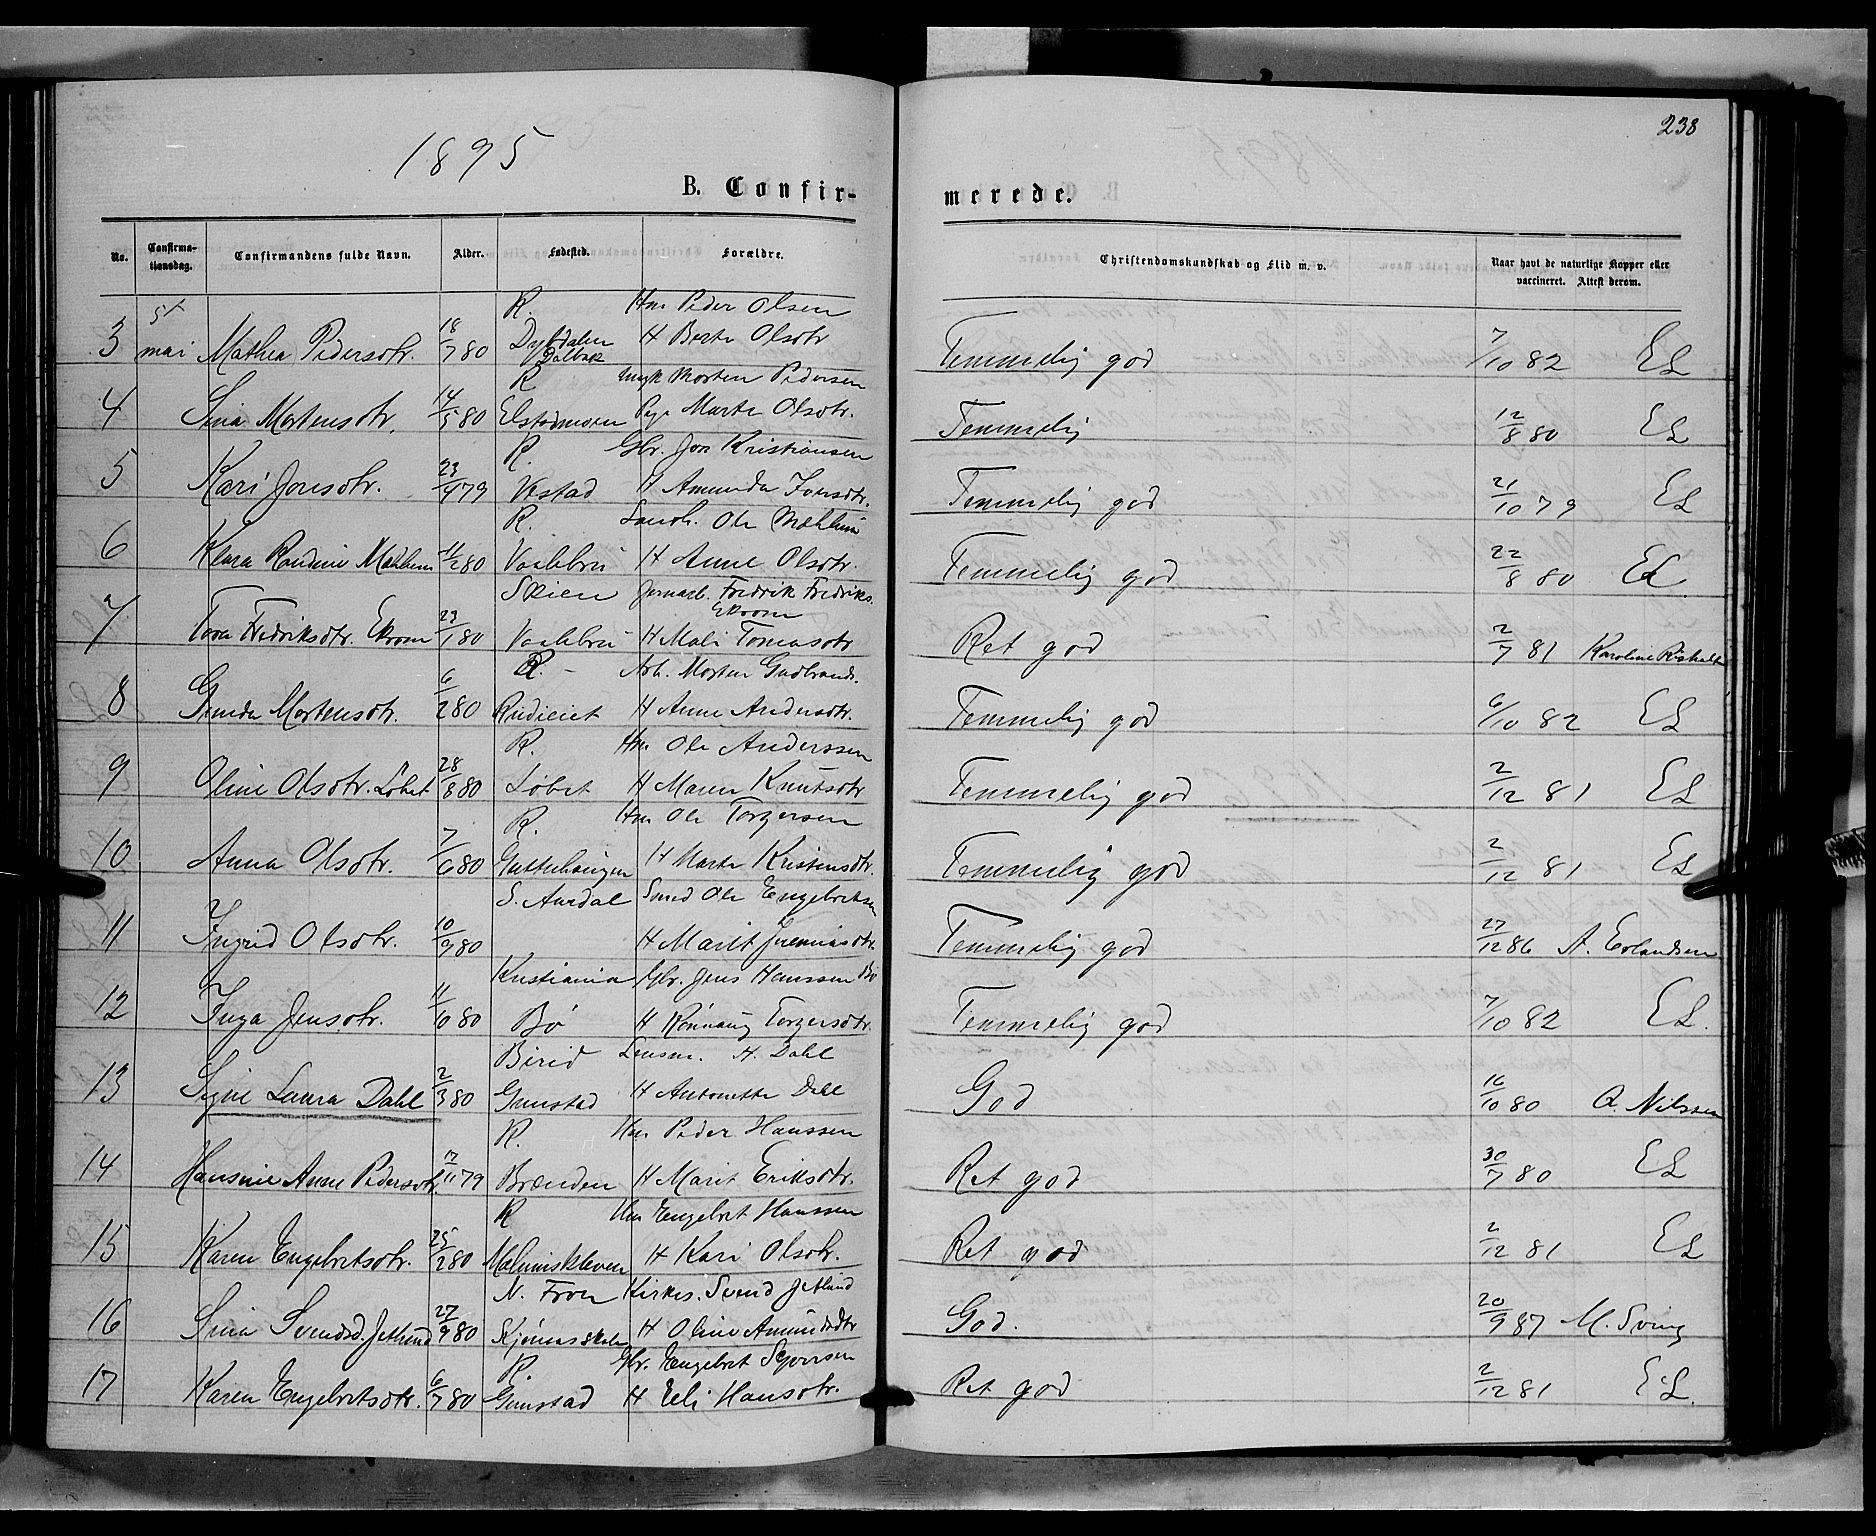 238
1895
B. Confir-
merede.
No. Confirma-tionsdag. Confirmandens fulde Navn. Alder. Fødested. Forældre. Christendomskundskab og Flid m. v. Naar havt de naturlige Kopper eller vaccineret. Attest derom.
R. Hm Peder Olsen
3 mai Mathea Pedersdtr. 18/7 80 H Berte Olsdtr Temmelig god 7/10 82 EL
R Morten Pedersen
4 Sina Mortensdtr. 14/5 80 Elstadmoen Marte Olsdtr. Temmelig 12/8 80 EL
R. Gbr. Jon Kristiansen
5 Kari Jonsdtr. 23/4 79 Vestad H Amunda Iversdtr. Temmelig god 21/10 79 EL
R. Ole Mæhlum
6 Klara Randine Mæhlum 11/2 80 Vaalebru H Anne Olsdtr. Temmelig god 22/8 80 EL
Skien Jernarb. Fredrik Fredriks. Ekrom
7 Tora Fredriksdtr. Ekrom 23/1 80 Vaalebru H Mali Tomasdtr Ret god 2/7 81 Karoline
R. Arb. Morten Gudbrands.
8 Gunda Mortensdtr. 6/2 80 Rudieiet H Anne Andersdtr. Temmelig god 6/10 82 EL
R. Hm Ole Anderssen
9 Oline Olsdtr. Løbet 28/8 80 Løbet H Maren Knutsdtr Temmelig god 2/12 81 EL
R. Hm Ole Torgersen
10 Anna Olsdtr. 7/6 80 H Marte Kristensdtr. Temmelig god 2/12 81 EL
S. Aurdal Smed Ole Engebretsen
11 Ingrid Olsdtr. 10/9 80 H Marit Jeremiasdtr. Temmelig god 27/12 86 A. Erlandsen
Kristiania Gbr. Jens Hanssen Bø
12 Inga Jensdtr. 11/10 80 Bø H Rønnaug Torgersdtr. Temmelig god 7/10 82 EL.
Birid Lensm. H. Dahl
13 Signe Laura Dahl 2/3 80 Grimstad H Antonette Dahl God 16/10 80 O. Nilssen
R. Hm Peder Hanssen
14 Hansine Anne Pedersdtr. 17/11 79 Brænden H Marit Eriksdtr. Ret god 30/7 80 EL
R Hm Engebret Hanssen
15 Karen Engebretsdtr. 25/2 80 Mælumskleven H Kari Olsdtr. Ret god 2/12 81 EL
N. Fron Kirkes. Svend Jetlund
16 Sina Svendsd. Jetlund 27/9 80 H Oline Amundsdtr God. 20/9 87 M. Sveng
R. Gbr. Engebret Syversen
17 Karen Engebretsdtr. 6/7 80 Grimstad H Eli Hansdtr. Ret god 2/12 81 EL.